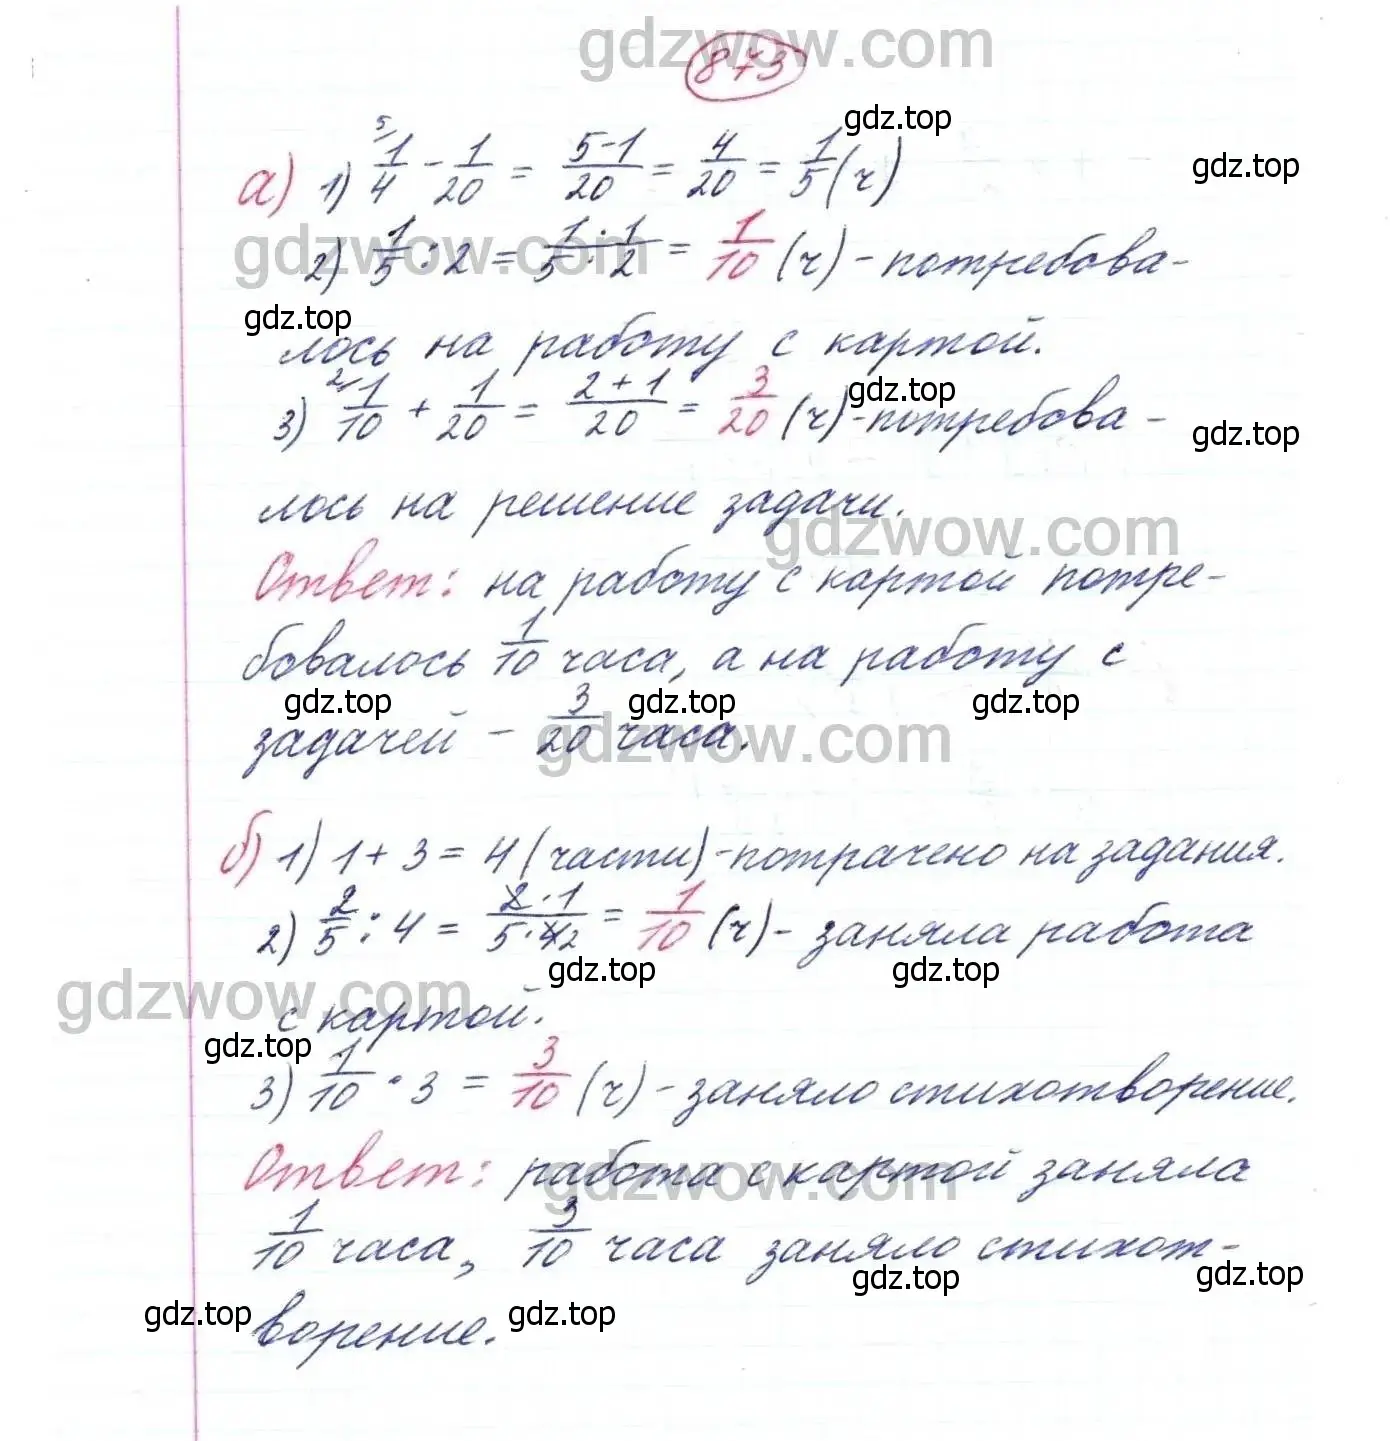 gdzwow.com
873
gdz.top
а) 1) ⁵⁄ 1/4 - 1/20 = 5-1/20 = 4/20 = 1/5 (ч)
gdz.top
gdzwow.com
2) 1/5 : 2 = 1·1/5·2 = 1/10 (ч) - потребова-
gdz.top
лось на работу с картой.
gdz.top
3) ²⁄ 1/10 + 1/20 = 2+1/20 = 3/20 (ч) - потребова-
gdz.top
лось на решение задачи.
gdzwow.com
Ответ: на работу с картой потре-
бовалось 1/10 часа, а на работу с
gdz.top gdz.top gdz.top
задачей - 3/20 часа.
gdzwow.com
б) 1) 1 + 3 = 4 (части) - потрачено на задания.
2) 2/5 : 4 = 2·1/5·4₂ = 1/10 (ч) - заняла работа
gdz.top gdz.top
gdzwow.com
с картой.
gdz.top
3) 1/10 · 3 = 3/10 (ч) - заняло стихотворение.
Ответ: работа с картой заняла
gdzwow.com
1/10 часа, 3/10 часа заняло стихот-
gdz.top gdz.top
gdz.top gdz.top
ворение.